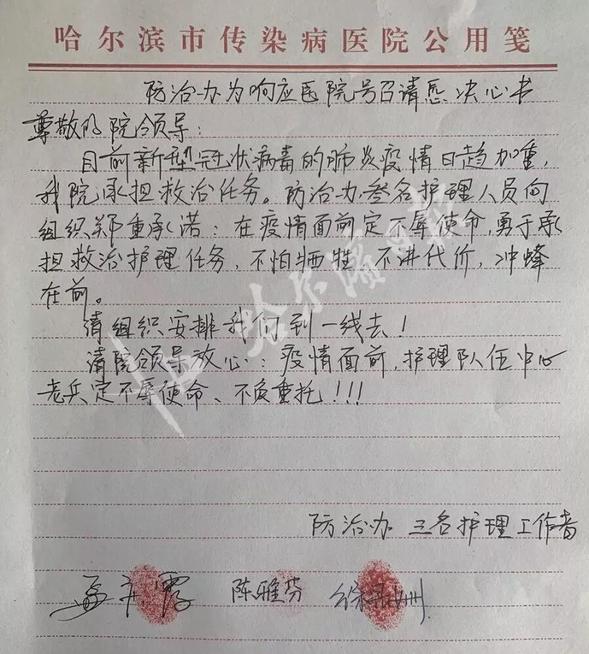 哈尔滨市传染病医院公用笺
防治办为响应医院号召请愿决心书
尊敬的院领导:
目前新型冠状病毒的肺炎疫情日趋加重,
我院承担救治任务。防治办叁名护理人员向
组织郑重承诺:在疫情面前定不辱使命,勇于承
担救治护理任务,不怕牺牲,不讲代价,冲蜂
在前。
请组织安排我们到一线去!
请院领导放心:疫情面前,护理队伍中心
老兵定不辱使命、不负重托!!!
防治办 三名护理工作者
孟 霞 陈雅芬 徐
哈尔滨日报